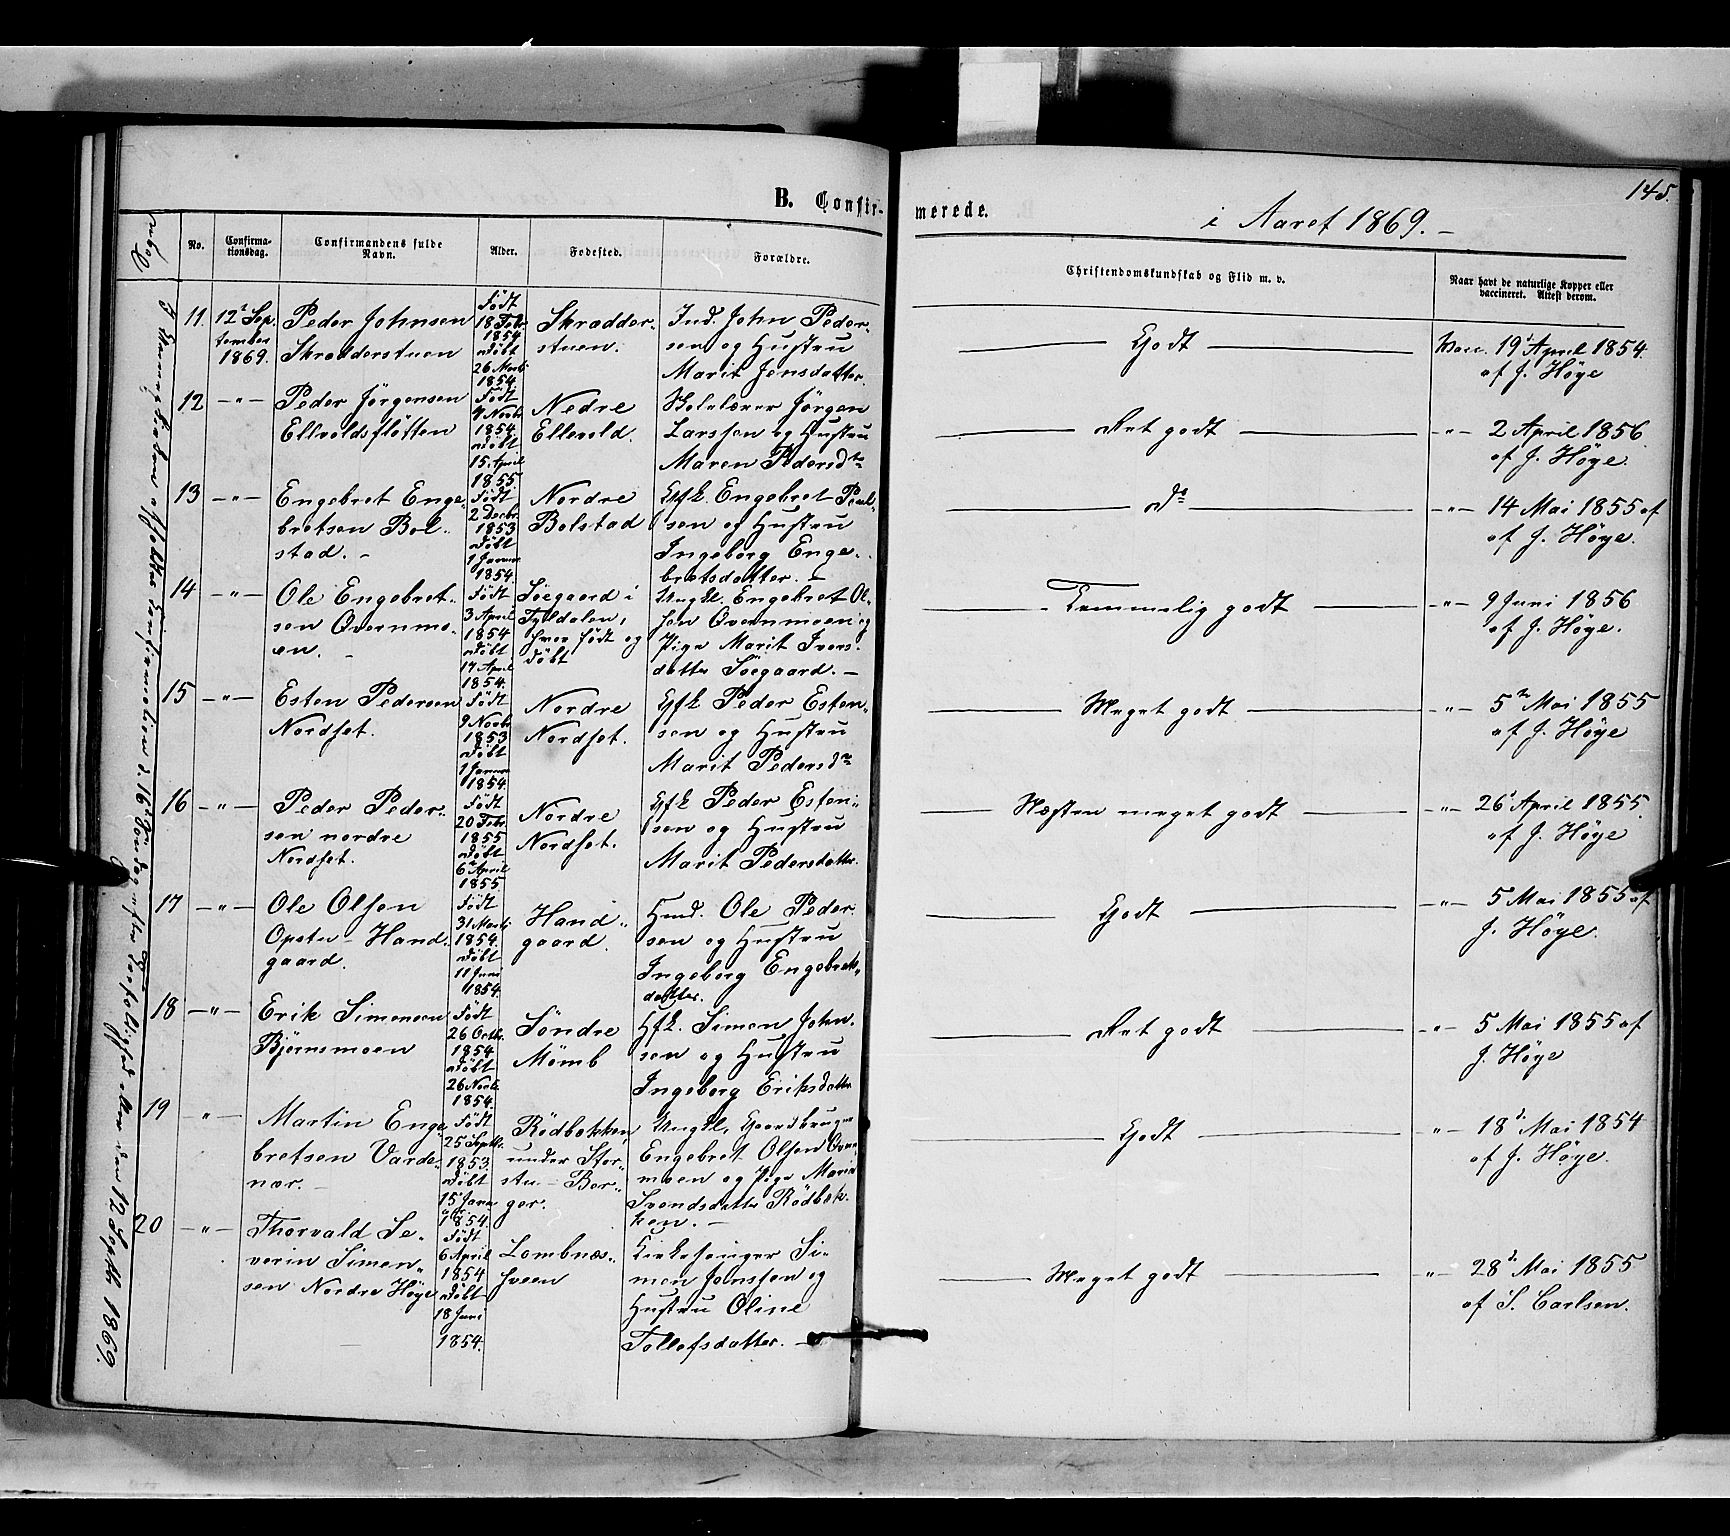 B. Confir-
merede.
i Aaret 1869.
145.
No.
Confirma-
tionsdag.
Confirmandens fulde
Navn.
Alder.
Fødested.
Forældre.
Christendomskundskab og Flid m. v.
Naar havt de naturlige Kopper eller
vaccineret. Attest derom.
11.
12te Sep-
tember
1869.
Peder Johnsen
Skrædderstuen
Født
18 Febr
1854
døbt
26 Marts
1854.
Skrædder-
stuen.
Ind. John Peder-
sen og Hustru
Marit Jensdatter.
Godt
Vacc. 19 April 1854.
af J. Høye
12
-"-
Peder Jørgensen
Ellevoldsfløtten
Født
4 Novbr
1854.
døbt.
15. April
1855.
Nedre
Ellevold.
Skolelærer Jørgen
Larssen og Hustru
Maren Pedersdtr
Ret godt
-"- 2 April 1856
af J. Høye.
13
-"-
Engebret Enge-
bretsen Bol-
stad. -
Født
2 Decbr.
1853
døbt
1 Januar
1854.
Nordre
Bolstad
Gfk. Engebret Paul-
sen og Hustru
Ingeborg Enge-
bretsdatter. -
Do
-"- 14 Mai 1855 af
af J. Høye.
14
-"-
Ole Engebret-
sen Øvernmo-
en. -
Født
3 April
1854
døbt
17 April
1854.
Søegaard i
Tyldalen,
hvor født og
døbt
Ungkl. Engebret Ol-
sen Øvernmoen og
Pige Marit Ivers-
datter Søegaard. -
Temmelig godt
-"- 9 Juni 1856
af J. Høye.
15
-"-
Esten Pedersen
Nordset.
Født
9 Novbr
1853
døbt
1 Januar
1854.
Nordre
Nordset.
Gfk Peder Esten-
sen og Hustru
Marit Pedersdtr
Meget godt
-"- 5 Mai 1855
af J. Høye
16
-"-
Peder Peder-
sen nordre
Nordset.
Født
20 Febr.
1855
døbt
6 April
1855.
Nordre
Nordset.
Gfk Peder Esten-
sen og Hustru
Marit Pedersdatter.
Næsten meget godt
-"- 26 April 1855.
af J. Høye
17
-"-
Ole Olsen
Opstu-Hand-
gaard.
Født
31 Marts
1854.
døbt
11 Juni
1854.
Hand-
gaard.
Hmd. Ole Peder
sen og Hustru
Ingeborg Engebrets-
datter.
Godt
-"- 5 Mai 1855 af
J. Høye.
18
-"-
Erik Simensen
Bjørnsmoen
Født
26 Octbr.
1854.
døbt
26 Novb.
1854.
Søndre
Mømb
Hfk. Simen John-
sen og Hustru
Ingeborg Eriksdatter
Ret godt
-"- 5 Mai 1855 af
J. Høye
19
-"-
Martin Enge
bretsen Varde-
nær. -
Født
25 Septbr.
1853.
døbt
15 Janu
ar
1854.
Rødbækken
under Stor-
stu-Bor-
ger.
Ungkl. Gaardbruger
Engebret Olsen Øvern
moen og Pige Marie
Svendsdatter Rødbæk-
ken. -
Godt
-"- 18 Mai 1854
af J. Høye.
20
-"-
Thorvald Se-
verin Simen-
sen Nordre Høye
Født
6 April
1854
døbt
18 Juni
1854.
Lombnæs-
sveen
Kirkesanger Si-
men Jonssen og
Hustru Oline
Tollefsdatter. -
Meget godt
-"- 28 Mai 1855
af S. Carlsen.
12 Septbr. 1869.